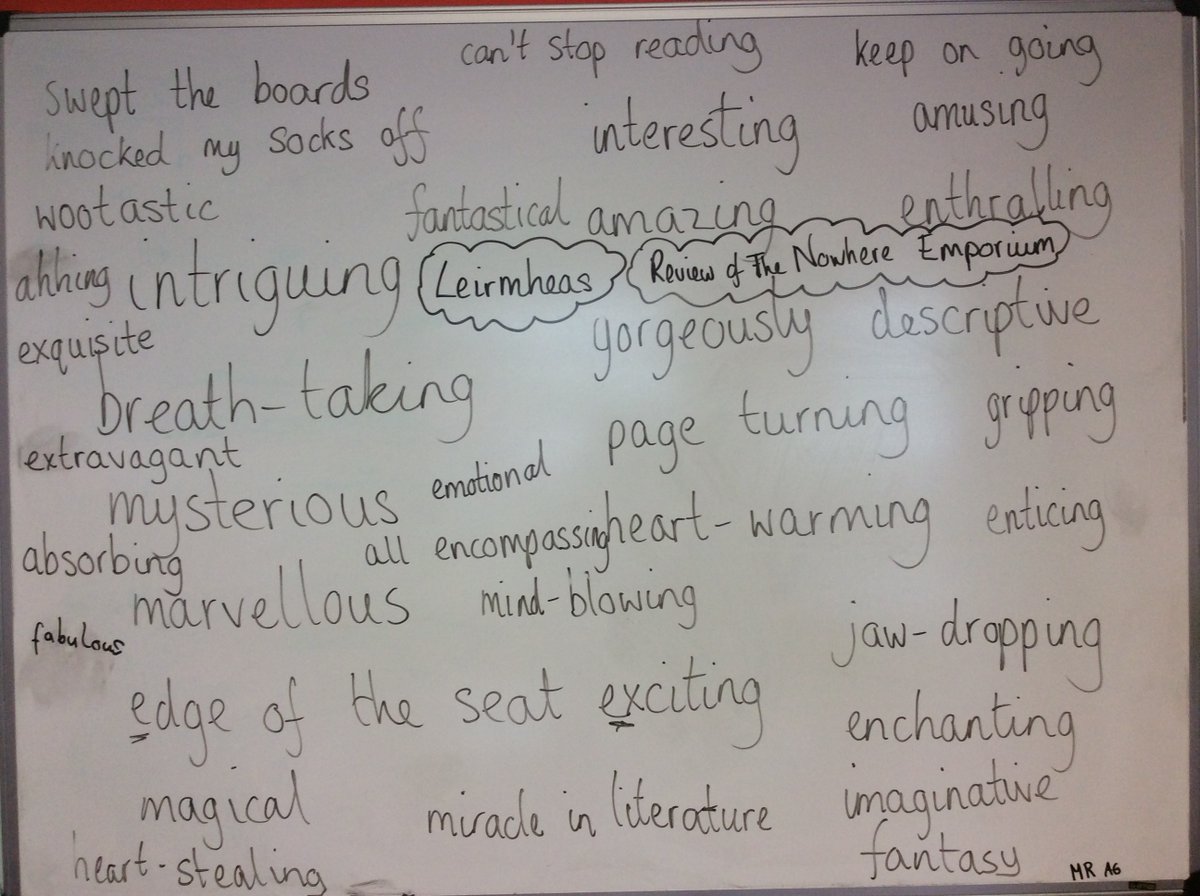 can't stop reading keep on going
swept the boards
knocked my socks off interesting amusing
wootastic fantastical amazing enthralling
ahhing intriguing Leirmheas Review of The Nowhere Emporium
exquisite gorgeously descriptive
breath-taking page turning gripping
extravagant
mysterious emotional
absorbing all encompassing heart-warming enticing
marvellous mind-blowing
fabulous jaw-dropping
edge of the seat exciting enchanting
magical miracle in literature imaginative
heart-stealing fantasy MR AG